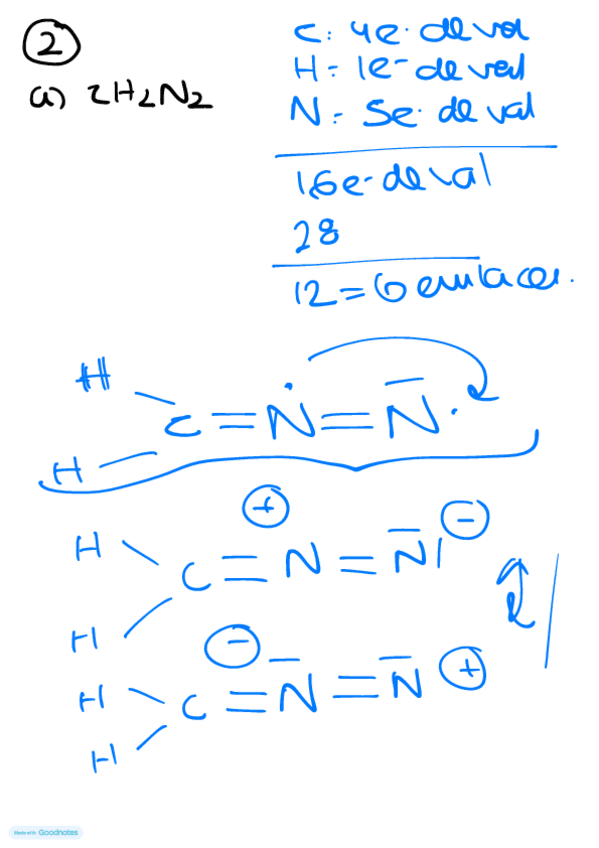 2
a) CH2N2
C: 4e- de val
H: 1e- de val
N: 5e- de val
16e- de val
28
12 = 6 enlaces.
H
C = N = N
H
+
-
H
C = N = N
H
-
+
H
C = N = N
H
Made with Goodnotes